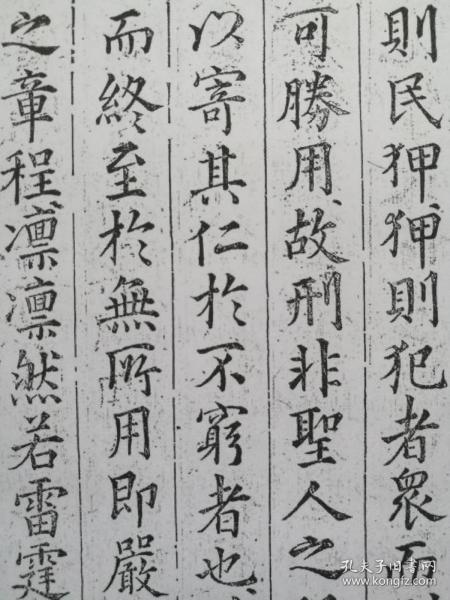 則民狎狎則犯者衆而
可勝用故刑非聖人之
以寄其仁於不窮者也
而終至於無所用即嚴
之章程凛凛然若雷霆
孔夫子旧书网
kongfz.com